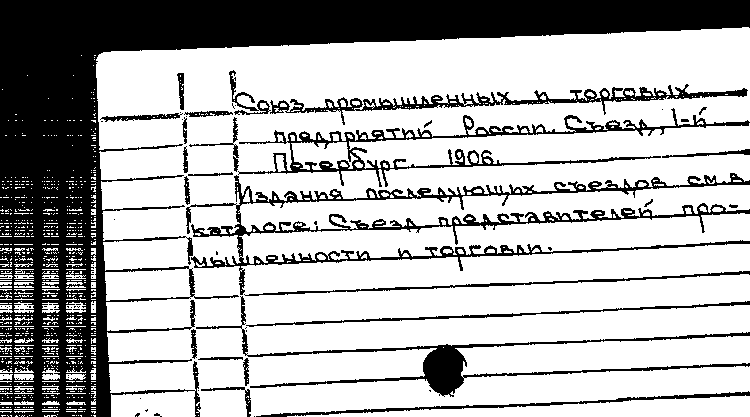 Союз промышленных и торговых
предприятий России. Съезд, 1-й.
Петербург. 1906.
Издания последующих съездов см. в
каталоге: Съезд представителей про-
мышленности и торговли.